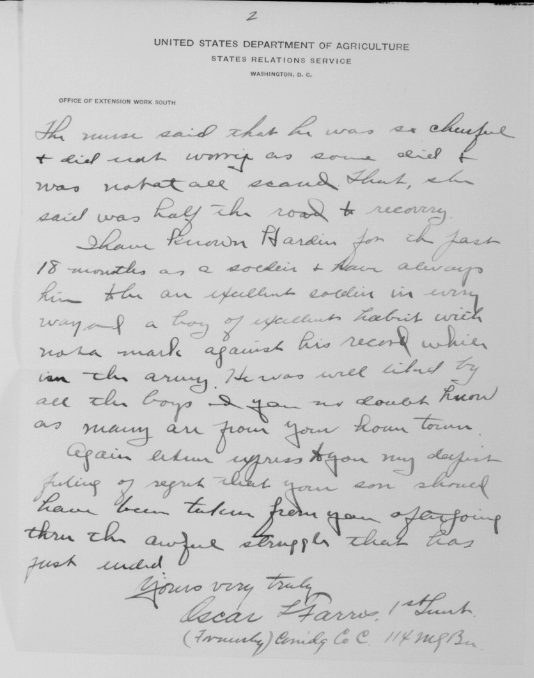 2
UNITED STATES DEPARTMENT OF AGRICULTURE
STATES RELATIONS SERVICE
WASHINGTON, D. C.
OFFICE OF EXTENSION WORK SOUTH
The nurse said that he was so cheerful
& did not worry as some did &
was not at all scared. That, she
said was half the road to recovery.
I have known Hardin for the past
18 months as a soldier & have always
him to be an excellent soldier in every
way and a boy of excellent habits with
not a mark against his record while
in the army. He was well liked by
all the boys you no doubt know
as many are from your home town.
Again let me express to you my deepest
feeling of regret that your son should
have been taken from you after going
thru the awful struggle that has
just ended.
Yours very truly
Oscar L Farris, 1st Lieut.
(Formerly) Comdg Co C. 114 MG Bn